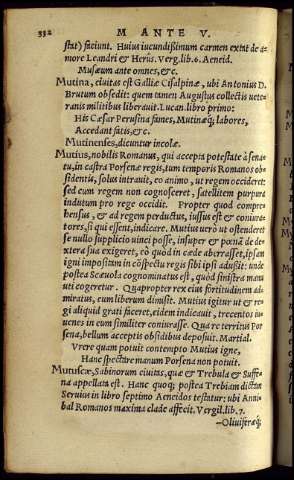 332 M ANTE V.
stat) faciunt. Huius iucundissimum carmen extat de a-
more Leandri & Herûs. Verg. lib. 6. Aeneid.
Musæum ante omnes, &c.
Mutina, ciuitas est Galliæ Cisalpinæ, ubi Antonius D.
Brutum obsedit: quem tamen Augustus collectis uete-
ranis militibus liberauit. Lucan. libro primo:
His Cæsar Perusina fames, Mutinæq; labores,
Accedant fatis, & c.
Mutinenses, dicuntur incolæ.
Mutius, nobilis Romanus, qui accepta potestate à sena-
tu, in castra Porsenæ regis, tum temporis Romanos ob-
sidentis, solus intrauit, eo animo, ut regem occideret:
sed cum regem non cognosceret, satellitem purpura
indutum pro rege occidit. Propter quod compre-
hensus, & ad regem perductus, iussus est & coniura-
tores, si qui essent, indicare. Mutius uerò ut ostenderet
se nullo supplicio uinci posse, insuper & pœnã de dex-
tera sua exigeret, eò quod in cæde aberrasset, ipsam
igni impositam in cõspectu regis sibi ipsi adussit: unde
postea Scæuola cognominatus est, quòd sinistra manu
uti cogeretur. Quapropter rex eius fortitudinem ad-
miratus, eum liberum dimisit. Mutius igitur ut & re-
gi aliquid grati faceret, eidem indicauit, trecentos iu-
uenes in eum similiter coniurasse. Qua re territus Por
sena, bellum acceptis obsidibus deposuit. Martial.
Vrere quam potuit contempto Mutius igne,
Hanc spectare manum Porsena non potuit.
Mutuscæ, Sabinorum ciuitas, quæ & Trebula & Suffe-
na appellata est. Hanc quoq; postea Trebiam dictam
Seruius in libro septimo Aeneidos testatur: ubi Anni-
bal Romanos maxima clade affecit. Vergil. lib. 7.
—Oliuiferæq;